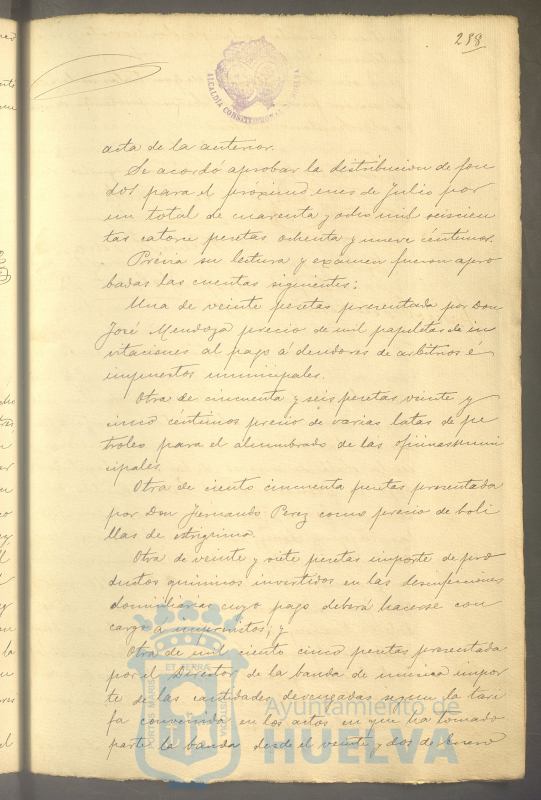 238
ALCALDIA CONSTITUCIONAL
acta de la anterior.
Se acordó aprobar la distribucion de fon
dos para el próximo mes de Julio por
un total de cuarenta y ocho mil seiscien
tas catorce pesetas ochenta y nueve céntimos.
Prévia su lectura y exámen fueron apro
badas las cuentas siguientes:
Una de veinte pesetas presentada por Don
José Mendoza precio de mil papeletas de in
vitaciones al pago á deudores de arbitrios é
impuestos municipales.
Otra de cincuenta y seis pesetas veinte y
cinco céntimos precio de varias latas de pe
troleo para el alumbrado de las oficinas muni
cipales.
Otra de ciento cincuenta pesetas presentada
por Don Fernando Perez como precio de boli
llas de estrignina.
Otra de veinte y siete pesetas importe de pro
ductos quimicos invertidos en las desinfecciones
domiciliarias cuyo pago deberá hacerse con
cargo a imprevistos; y
Otra de mil ciento cinco pesetas presentada
por el Director de la banda de musica impor
te de las cantidades devengadas segun la tari
fa convenida en los actos en que ha tomado
parte la banda desde el veinte y dos de Enero
Ayuntamiento de
HUELVA